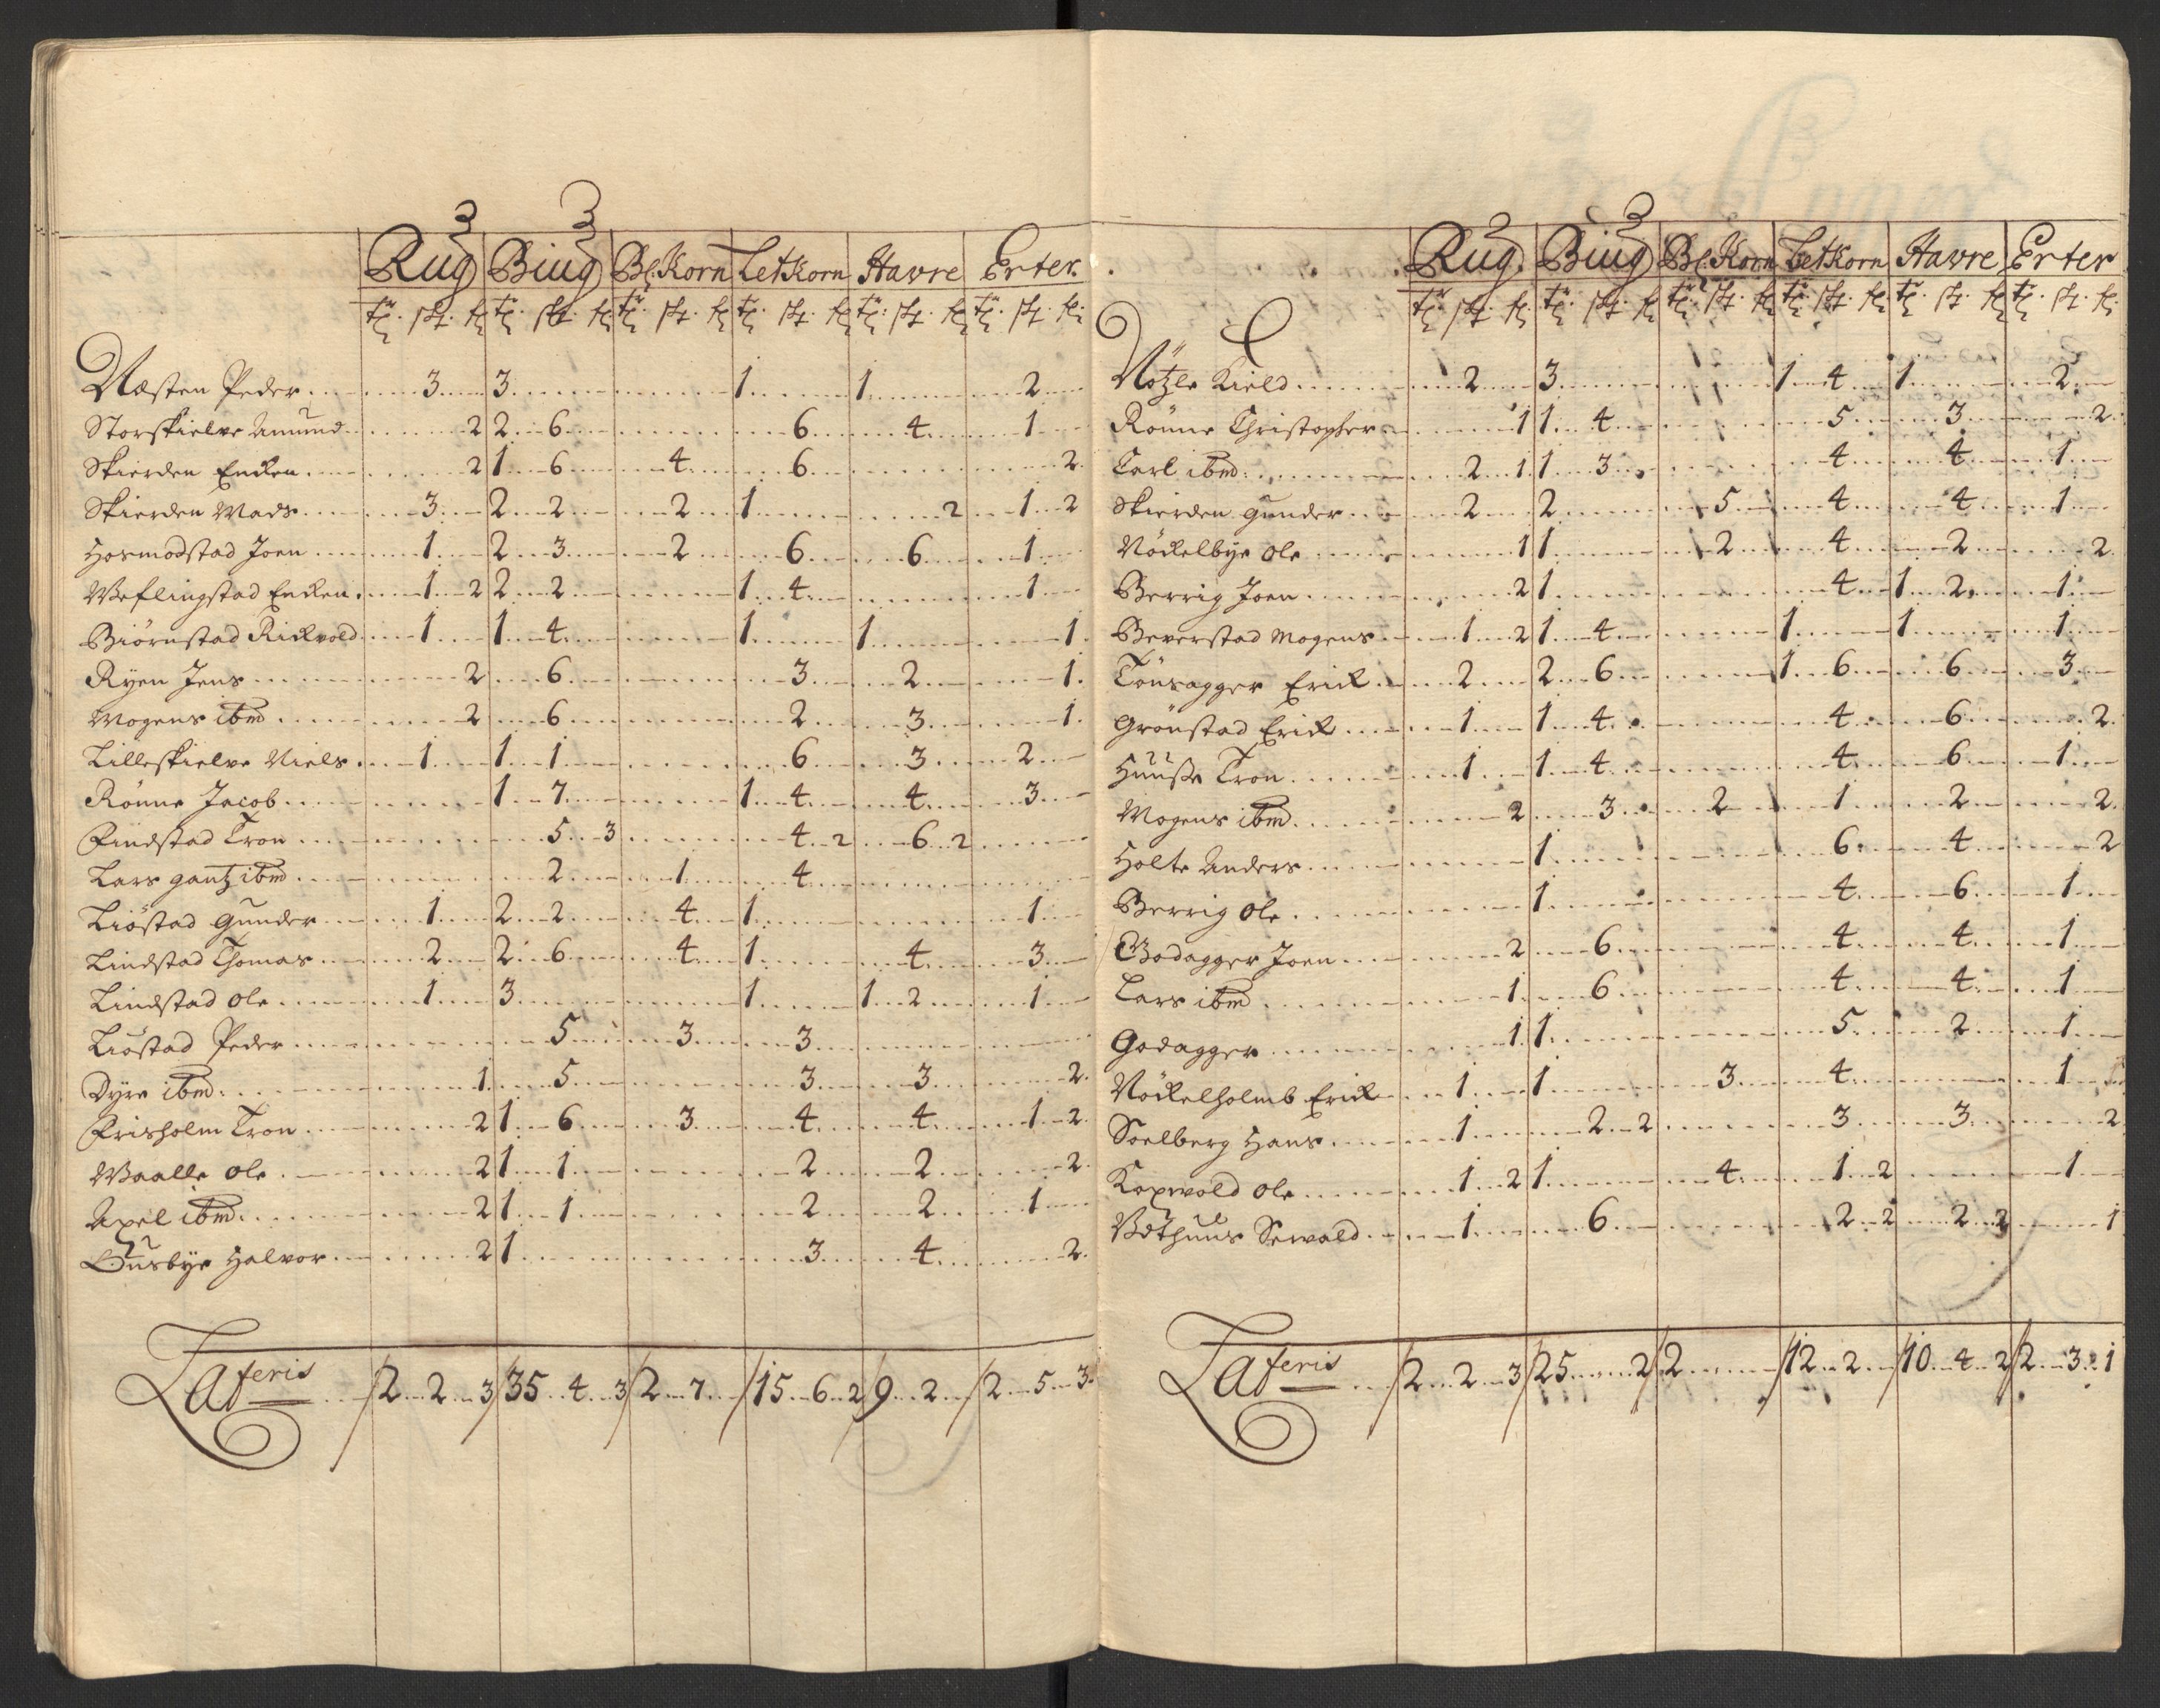 Rug Biug Bl: Korn Letkorn Havre Erter
tr. sk. fr. tr. sk. fr. tr. sk. fr. tr. sk. fr. tr. sk. fr. tr. sk. fr.
Næsten Peder 3 3 1 1 2
Storskielve Amund 2 2 6 6 4 1
Skierden Encken 2 1 6 4 6 2
Skierden Mads 3 2 2 2 1 2 1 2
Hosmodstad Joen 1 2 3 2 6 6 1
Weflingstad Encken 1 2 2 2 1 4 1
Biörnstad Rickvold 1 1 4 1 1 1
Ryen Jens 2 6 3 2 1
Mogens ibm 2 6 2 3 1
Lilleskielve Niels 1 1 1 6 3 2
Rönne Jacob 1 7 1 4 4 3
Findstad Tron 5 3 4 2 6 2
Lars gantz ibm 2 1 4
Liöstad Gunder 1 2 2 4 1 1
Lindstad Thomas 2 2 6 4 1 4 3
Lindstad Ole 1 3 1 1 2 1
Liöstad Peder 5 3 3
Dyre ibm 1 5 3 3 2
Frisholm Tron 2 1 6 3 4 4 1 2
Waalle Ole 2 1 1 2 2 2
Axel ibm 2 1 1 2 2 1
Huusbye Halvor 2 1 3 4 2
Lateris 2 2 3 35 4 3 2 7 15 6 2 9 2 2 5 3
Rug Biug Bl: Korn Letkorn Havre Erter
tr. sk. fr. tr. sk. fr. tr. sk. fr. tr. sk. fr. tr. sk. fr. tr. sk. fr.
Nötzle Kield 2 3 1 4 1 2
Rönne Christopher 1 1 4 5 3 2
Carl ibm 2 1 1 3 4 4 1
Skierden Gunder 2 2 5 4 4 1
Nöckelbye Ole 1 1 2 4 2 2
Berrig Joen 2 1 4 1 2 1
Beverstad Mogens 1 2 1 4 1 1 1
Tönsagger Erick 2 2 6 1 6 6 3
Grönstad Erick 1 1 4 4 6 2
Huusse Tron 1 1 4 4 6 1
Mogens ibm 2 3 2 1 2 2
Holte Anders 1 6 4 2
Berrig Ole 1 4 6 1
Godagger Joen 2 6 4 4 1
Lars ibm 1 6 4 4 1
Godagger 1 1 5 2 1
Nöckelholmb Erick 1 1 3 4 1
Soelberg Hans 1 2 2 3 3 2
Kopvold Ole 1 2 1 4 1 2 1
Wethuus Sewald 1 6 2 2 2 2 1
Lateris 2 2 3 25 2 2 12 2 10 4 2 2 3 1